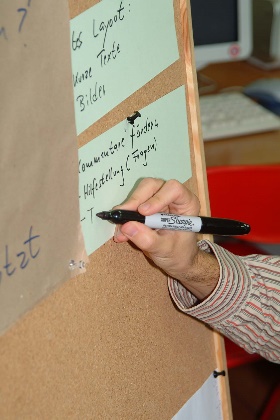 es Layout:
kurze Texte
Bilder
Kommentare fördern
- Hilfestellung (Fragen)
- T
Sharpie